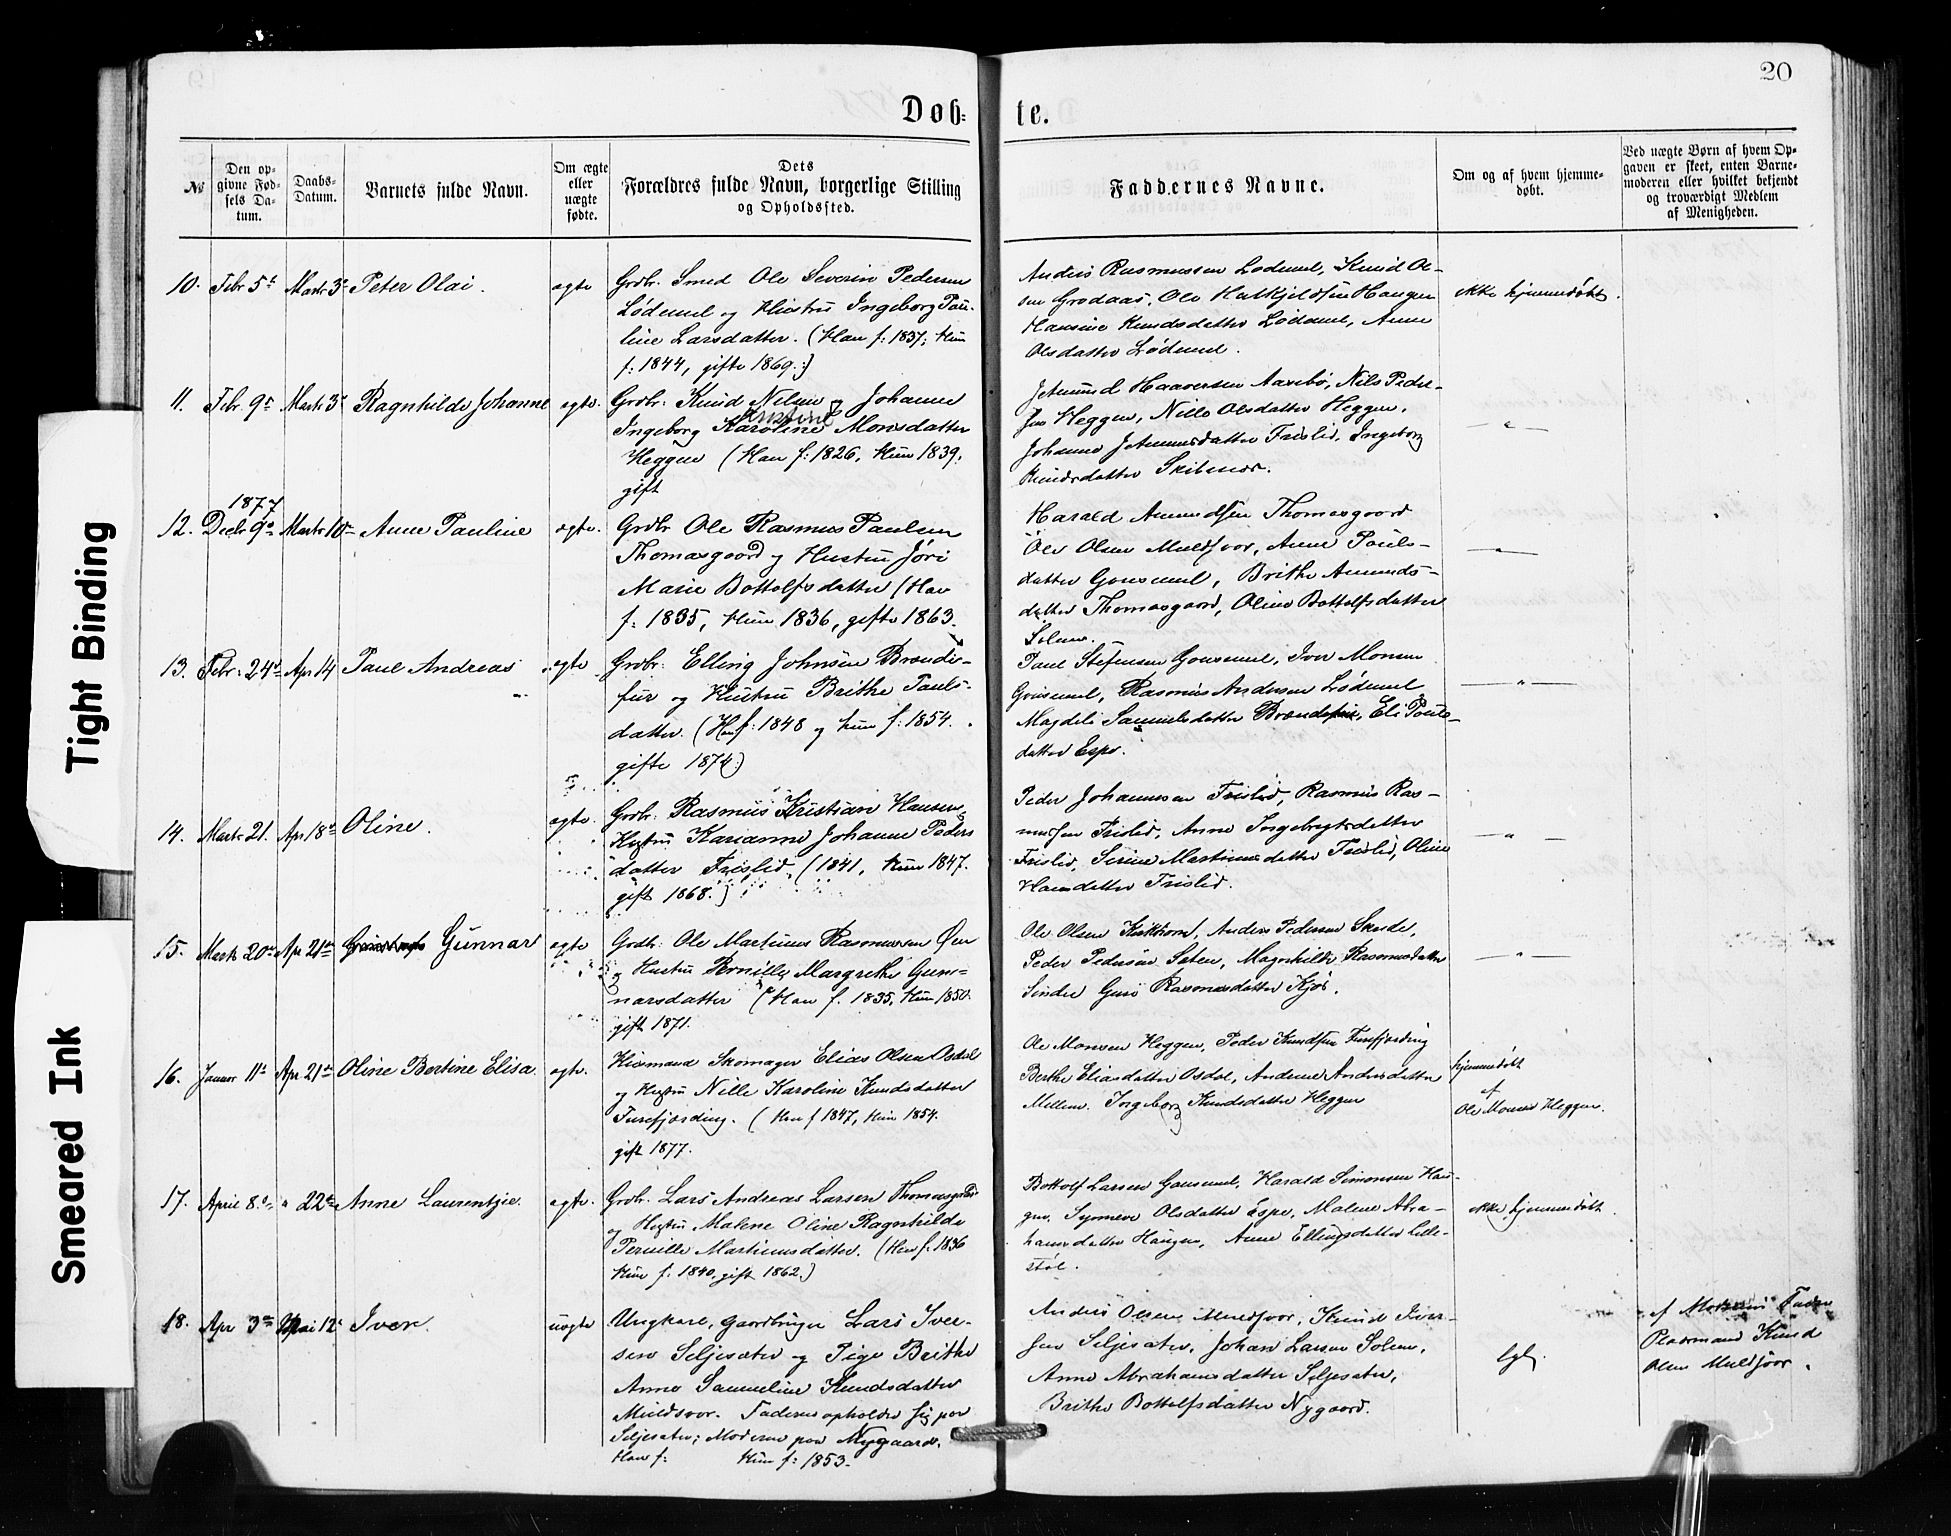 20
Døb-
te.
№
Den op-
givne Fød-
sels Da-
tum.
Daabs-
Datum.
Barnets fulde Navn.
Om ægte
eller
uægte
fødte.
Dets
Forældres fulde Navn, borgerlige Stilling
og Opholdssted.
Faddernes Navne.
Om og af hvem hjemme-
døbt.
Ved uægte Børn af hvem Op-
gaven er skeet, enten Barne-
moderen eller hvilket bekjendt
og troværdigt Medlem
af Menigheden.
10. Febr 5t Marts 3. Peter Olai. ægte
Grdbr. Smed Ole Severin Pedersen
Lødemel og Hustru Ingeborg Pau-
line Larsdatter. (Han f: 1837, Hun
f: 1844, gifte 1869.)
Anders Rasmussen Lødemel, Knud Ol-
sen Grodaas, Ole Haugen
Hansine Knudsdatter Lødemel, Anne
Olsdatter Lødemel.
ikke hjemmedøbt.
11. Febr. 9. Marts 3. Ragnhilde Johanne ægte.
Grdbr: Knud Nilsen og Johanne
Kristine
Ingeborg Karoline Monsdatter
Heggen (Han f: 1826, Hun 1839.
gift
Jetmund Haaversen Aarebø, Nils Peder-
sen Heggen, Nille Olsdatter Heggen,
Johanne Frislid, Ingeborg
Knudsdatter
— " —
1877
12. Decbr 9. Marts 10 Anne Pauline ægte.
Grdbr Ole Rasmus Paulsen
Thomasgaard og Hustru Jøri
Marie Bottolfsdatter (Han
f. 1835, Hun 1836, gifte 1863.
Harald Amundsen Thomasgaard
Ole Olsen Muldsvor, Anne Pouls-
datter Gousemel, Brithe Amunds-
datter Thomasgaard, Oline Bottolfsdatter
Solem.
— " —
13. Febr. 24. Apr 14 Paul Andreas ægte
Grdbr: Elling Johnsen Brænde-
fur og Hustru Brithe Pauls-
datter. (Han f. 1848 og Hun f: 1854.
gifte 1874)
Paul Stefensen Gousemel, Iver Monsen
Gousemel, Rasmus Andersen Lødemel
Magdeli Samuelsdatter Brændefur, Eli Pouls-
datter Espe.
— " —
14. Marts 21. Apr 18. Oline. ægte.
Grdbr: Rasmus Kristian Hansen &
Hustru Karianne Johanne Peders
datter Frislid, (1841, Hun 1847.
gift 1868.)
Peder Johannesen Frislid, Rasmus Ras-
mussen Frislid, Anne Ingebrigtsdatter
Frislid, Serine Martinusdatter Frislid, Oline
Hansdatter Frislid.
— " —
15. Marts 20. Apr 21. Gunnar ægte
Grdbr: Ole Martinus Rasmussen Øen
og Hustru Pernille Margrethe Gun-
narsdatter (Han f. 1835, Hun 1850.
gift 1871.
Ole Olsen Kirkhorn, Anders Pedersen Skeide,
Peder Pedersen Sæten, Magnhilde Rasmusdatter
Sindre Guri Rasmusdatter Kjøs.
— " —
16. Januar 11. Apr 21. Oline Bertine Elisa. ægte.
Huusmand Skomager Elias Olsen Osdal
og Hustru Nille Karoline Knudsdatter
Furefjærding. (Han f 1847, Hun 1854.
gift 1877.
Ole Monsen Heggen, Peder Knudsen Furefjærding
Berthe Eliasdatter Osdal, Andrine Andersdatter
Mellem. Ingeborg Knudsdatter Heggen
hjemmedøbt
af
Ole Monsen Heggen.
17. April 8. " 22. Anne Laurentzie. ægte.
Grdbr. Lars Andreas Larsen
og Hustru Malene Oline Ragnhilde
Pernille Martinusdatter. (Han f: 1836
Hun f. 1840, gift 1862.)
Bottolf Larsen Gousemel, Harald Simonsen Hau-
gen, Synneve Olsdatter Espe, Malene Abra-
hamsdatter Haugen, Anne Ellingsdatter Lille-
støl.
ikke hjemmedøbt.
18. Apr 3. Mai 12. Iver. uægte
Ungkarl, Gaardbruger Lars Iver-
sen Seljesæter og Pige Brithe
Anne Samueline Knudsdatter
Muldsvor. Faderen opholder sig paa
Seljesæter; Moderen paa Nygaard.
Han f: Hun f: 1853.
Anders Olsen Muldsvor, Knud Iver-
sen Seljesæter, Johan Larsen Solem,
Anne Abrahamsdatter Seljesæter,
Brithe Bottolfsdatter Nygaard.
af Moderens Fader
Plasmand Knud
Olsen Muldsvor.
Tight Binding
Smeared Ink